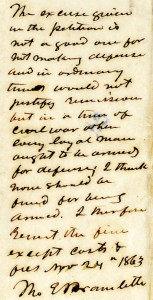 The excuse given
in the petition is
not a good one for
not making defense
and in ordinary
times would not
justify remission
but in a time of
civil war when
every loyal man
ought to be armed
for defense I think
none should be
fined for being
armed. I therefore
Remit the fine
except costs &
fees Nov 24th 1863
Tho E Bramlette